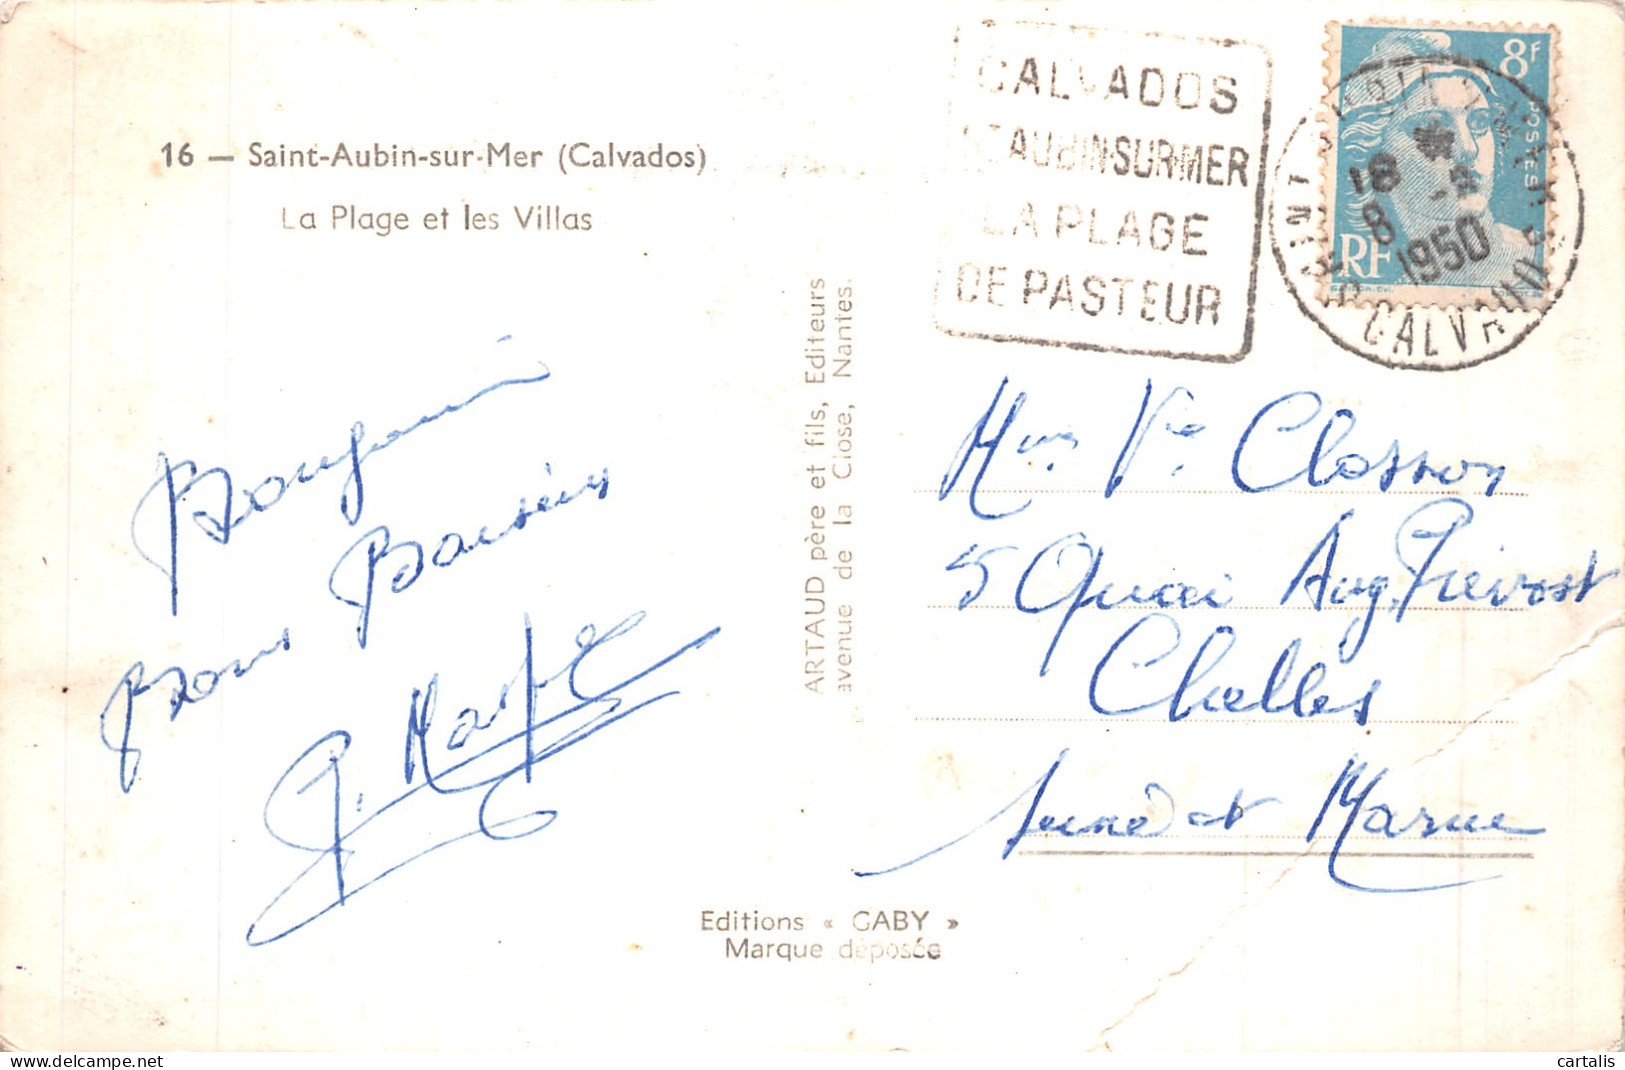 16 — Saint-Aubin-sur-Mer (Calvados)
La Plage et les Villas
CALVADOS
ST AUBIN-SUR-MER
LA PLAGE
DE PASTEUR
8F
POSTES
RF
18
8
1950
CALVADOS
ARTAUD père et fils, Editeurs
avenue de la Close, Nantes.
bons Baisers
Mme Ve Closson
5 Quai Aug. Prévost
Chelles
Seine et Marne
Editions « GABY »
Marque déposée
cartalis